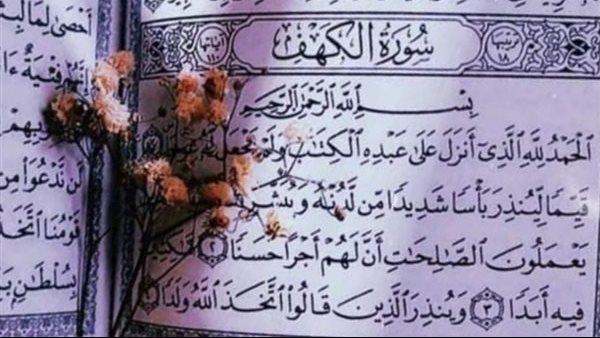 سُورَةُ الكَهْفِ
ترتيبها ١٨
آياتها
بِسْمِ ٱللَّهِ ٱلرَّحْمَٰنِ ٱلرَّحِيمِ
ٱلْحَمْدُ لِلَّهِ ٱلَّذِىٓ أَنزَلَ عَلَىٰ عَبْدِهِ ٱلْكِتَٰبَ وَلَمْ يَجْعَل لَّهُۥ
قَيِّمًا لِّيُنذِرَ بَأْسًا شَدِيدًا مِّن لَّدُنْهُ وَيُبَشِّرَ
يَعْمَلُونَ ٱلصَّٰلِحَٰتِ أَنَّ لَهُمْ أَجْرًا حَسَنًا ٢
فِيهِ أَبَدًا ٣ وَيُنذِرَ ٱلَّذِينَ قَالُوا۟ ٱتَّخَذَ ٱللَّهُ وَلَدًا
أَحْصَىٰ لِمَا
فِتْيَةٌ
لَن نَّدْعُوَا۟ مِن
قَوْمُنَا
بِسُلْطَٰنٍ